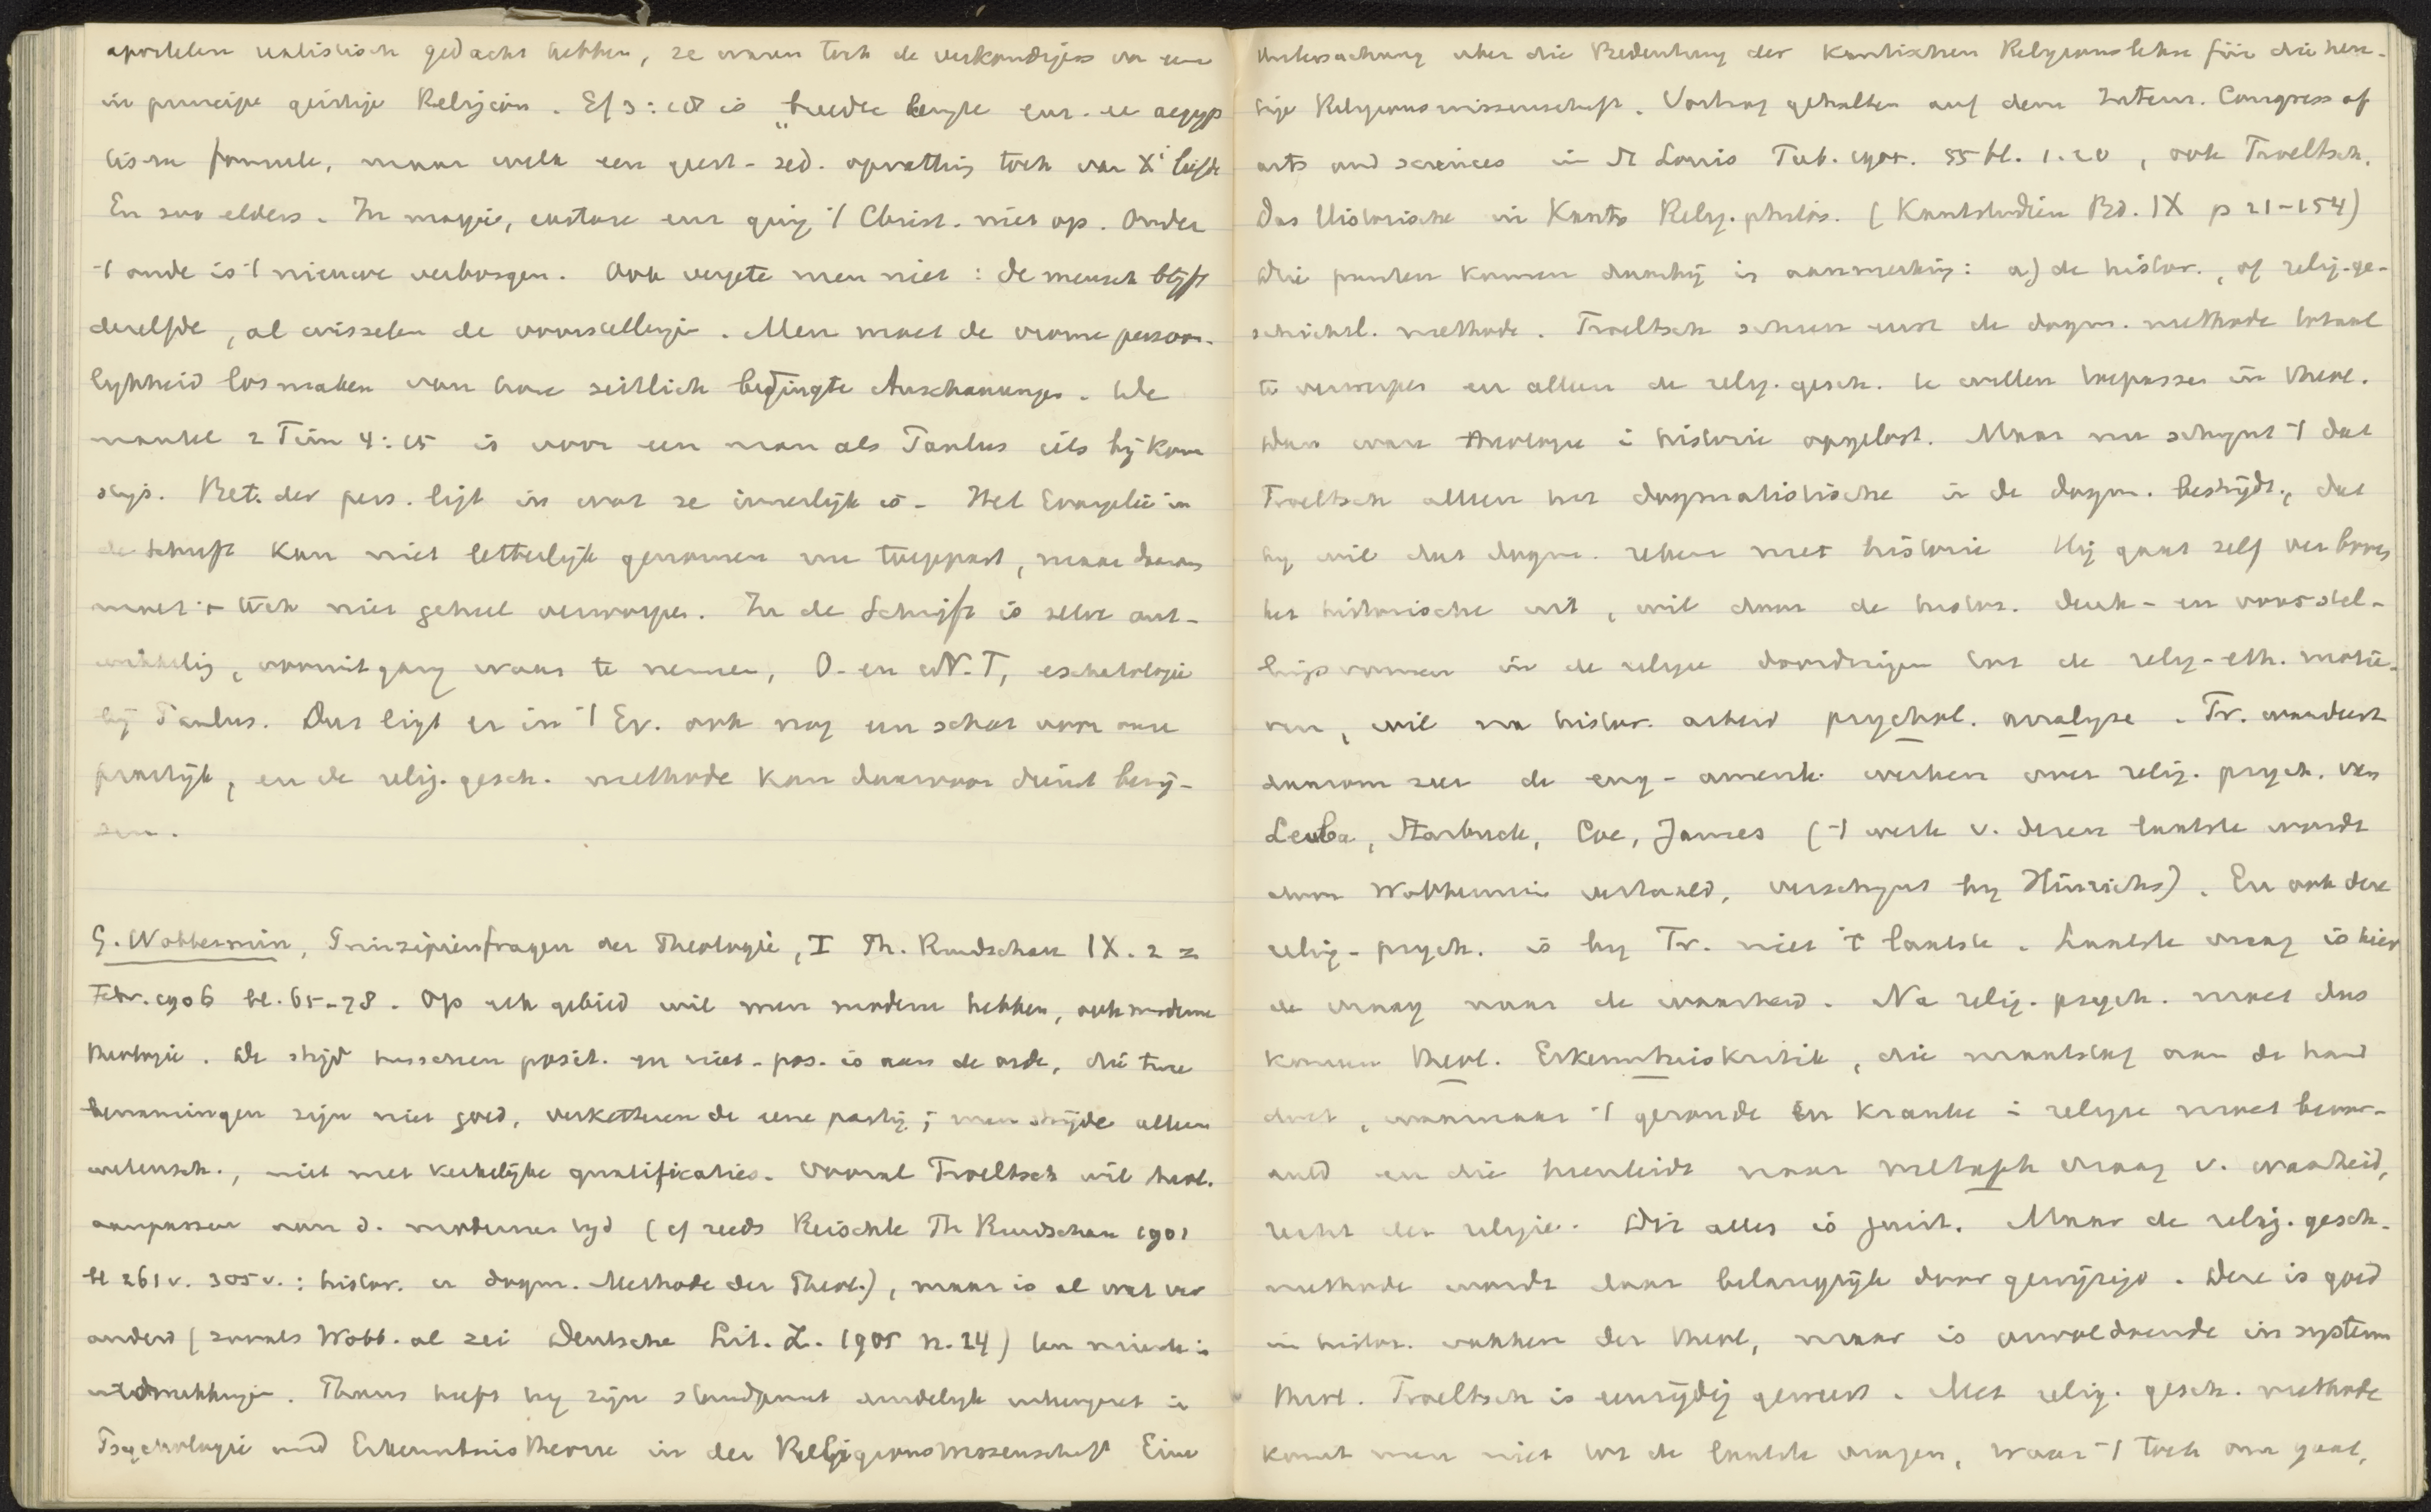 apostelen realistisch gedacht hebben, ze waren toch de verkondigers van eene
in principe geistige Religion. Ef 3:18 is „breedte lengte enz. een aegyp
tische formule, maar welk een geest-zed. opvatting toch van X' liefde
En zoo elders. In magie, extase enz ging 't Christ. niet op. Onder
't oude is 't nieuwe verborgen. Ook vergete men niet: de mensch blijft
dezelfde, al wisselen de voorstellingen. Men moet de vrome persoon-
lykheid losmaken van hare zeitlich bedingte Anschauungen. De
mantel 2 Tim 4:13 is voor een man als Paulus iets bijkom
stigs. Bet. der pers. ligt in wat ze innerlijk is. Het Evangelie in
de Schrift kan niet letterlijk genomen en toegepast, maar daarom
moet 't toch niet geheel verworpen. In de Schrift is zelve ont-
wikkeling, vooruitgang waar te nemen, O. en N.T, eschatologie
bij Paulus. Dus ligt er in 't Ev. ook nog een schat voor onze
praktijk, en de relig. gesch. methode kan daarvoor dienst bewij-
zen.
G. Wobbermin, Prinzipienfragen der Theologie, I Th. Rundschau IX. 2 =
Febr. 1906 bl. 65-78. Op elk gebied wil men moderne hebben, ook moderne
theologie. De strijd tusschen posit. en niet-pos. is aan de orde, die twee
benamingen zijn niet goed, verketteren de eene partij; men strijde alleen
wetensch., niet met kerkelijke qualificaties. Vooral Troeltsch wil theol.
aanpassen aan d. moderne tyd (cf reeds Reischle Th Rundschau 1901
bl 261 v. 305 v.: histor. en dogm. Methode der Theol.), maar is al wat ver
anderd (zooals Wobb. al zei Deutsche Lit. Z. 1905 n. 24)
uitdrukkingen. Thans heeft hij zijn standpunt duidelijk uiteengezet in
Psychologie und Erkenntnistheorie in der Religionswissenschaft Eine
Untersuchung über die Bedeutung der Kantischen Religionslehre für die heu-
tige Religionswissenschaft. Vortrag gehalten auf dem Intern. Congress of
arts and sciences in St Louis Tüb. 1905. 55 bl. 1.20, ook Troeltsch.
Das Historische in Kants Relig. philos. (Kantstudien Bd. IX p 21-154)
Drie punten komen daarbij in aanmerking: a) de histor., of relig.-ge-
schichtl. methode. Troeltsch scheen eerst de dogm. methode totaal
te verwerpen en alleen de relig. gesch. te willen toepassen in theol.
Dan ware theologie in historie opgelost. Maar nu schijnt 't dat
Troeltsch alleen het dogmatistische in de dogm. bestrijdt, dat
hij wil dat dogm. rekene met historie Hij gaat zelf ver boven
het historische uit, wil door de histor. denk- en voorstel-
lingsvormen in de religie doordringen tot de relig-eth. motie-
ven, wil na histor. arbeid psychol. analyse. Tr. waardeert
daarom zeer de eng-amerik. werken over relig. psych. van
Leuba, Starbuck, Coe, James ('t werk v. dezen laatste wordt
door Wobbermin vertaald, verschijnt bij Hinrichs). En ook deze
relig-psych. is bij Tr. niet 't laatste. Laatste vraag is hier
de vraag naar de waarheid. Na relig. psych. moet dus
komen theol. Erkenntniskritik, die maatstaf aan de hand
doet, waarnaar 't gezonde en kranke in religie moet beoor-
deeld en die heenleidt naar metaph vraag v. waarheid,
recht der religie. Dit alles is juist. Maar de relig. gesch-
methode wordt daar belangrijk door gewijzigd. Deze is goed
in histor. vakken der theol, maar is onvoldoende in system
theol. Troeltsch is eenzijdig geweest. Met relig. gesch. methode
komt men niet tot de laatste vragen, waar 't toch om gaat,